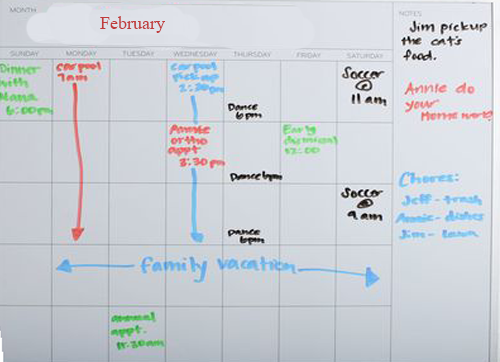 MONTH
February
NOTES
SUNDAY MONDAY TUESDAY WEDNESDAY THURSDAY FRIDAY SATURDAY
Dinner
with
Nana
6:00pm
carpool
7am
carpool
pickup
2:30pm
Dance
6pm
Soccer
@
11am
Annie
ortho
appt
3:30pm
Dance 6pm
Early
dismissal
12:00
Dance
6pm
Soccer
@
9am
family vacation
annual
appt.
11:30am
Jim pickup
the cat's
food.
Annie do
your
Homework!
Chores:
Jeff - trash
Annie - dishes
Jim - lawn